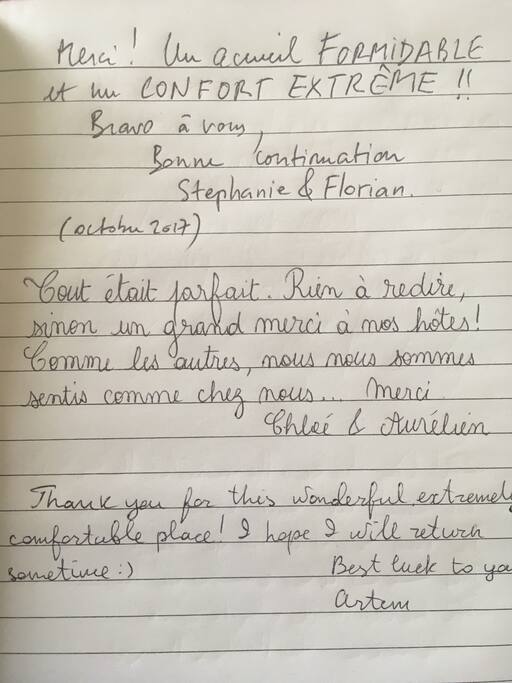 Merci ! Un accueil FORMIDABLE
et un CONFORT EXTRÊME !!
Bravo à vous,
Bonne continuation
Stephanie & Florian.
(octobre 2017)
Tout était parfait. Rien à redire,
sinon un grand merci à nos hôtes !
Comme les autres, nous nous sommes
sentis comme chez nous... Merci
Chloé & Aurélien
Thank you for this wonderful, extremely
comfortable place! I hope I will return
sometime :) Best luck to yo
Artem